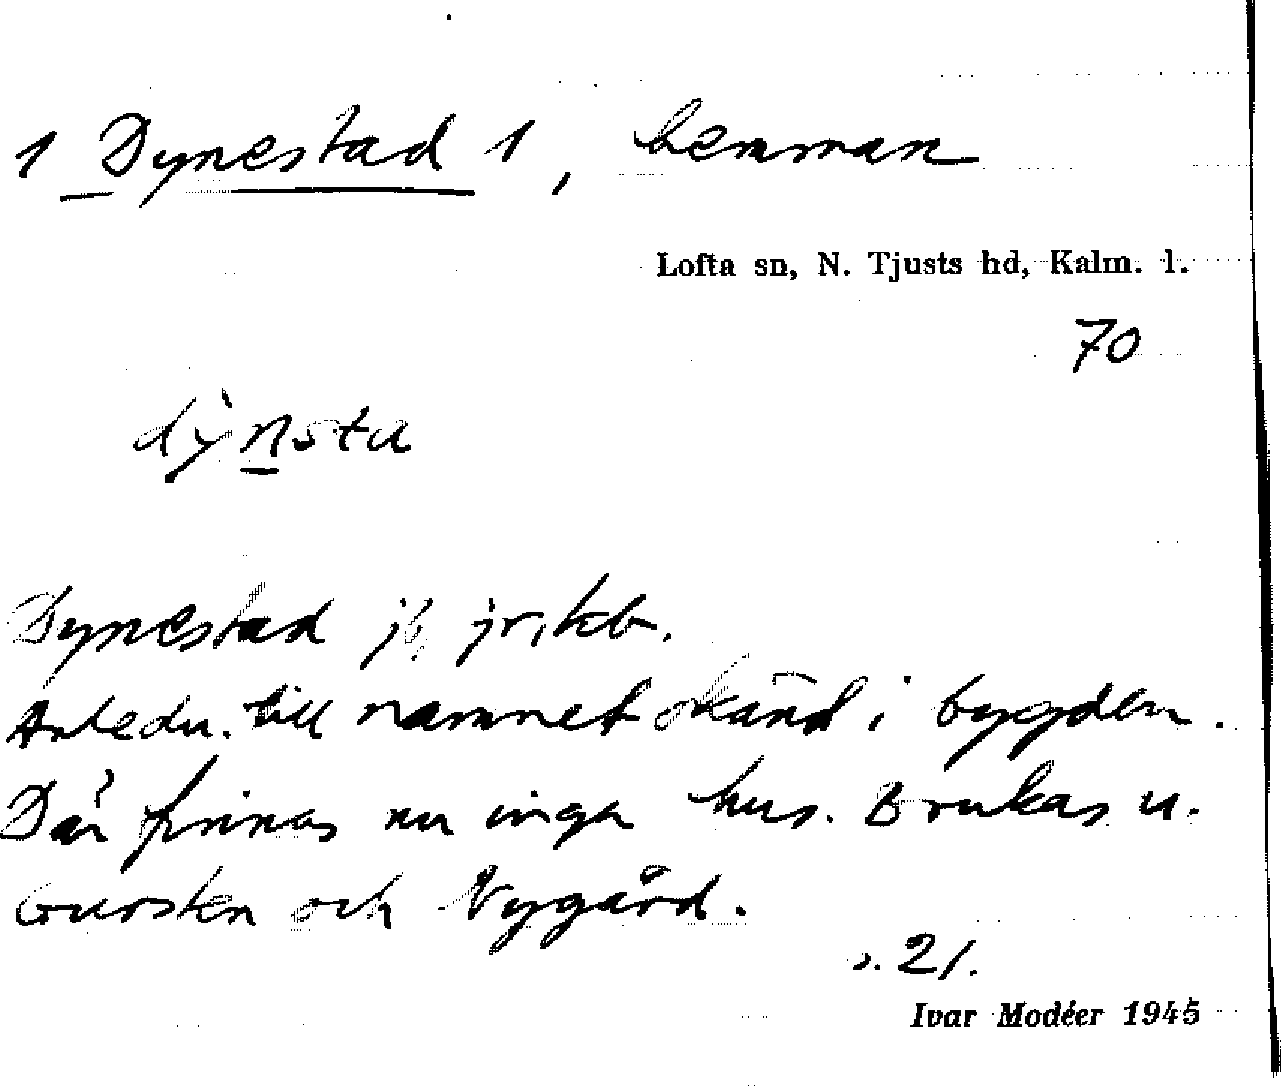 1 Dynestad 1, hemman
Lofta sn, N. Tjusts hd, Kalm. l.
70
dỳnsta
Dynestad jb, jr, kb.
Anledn. till namnet okänd i bygden.
Där finnas nu inga hus. Brukas u.
Gursten och Nygård.
s. 21.
Ivar Modéer 1945